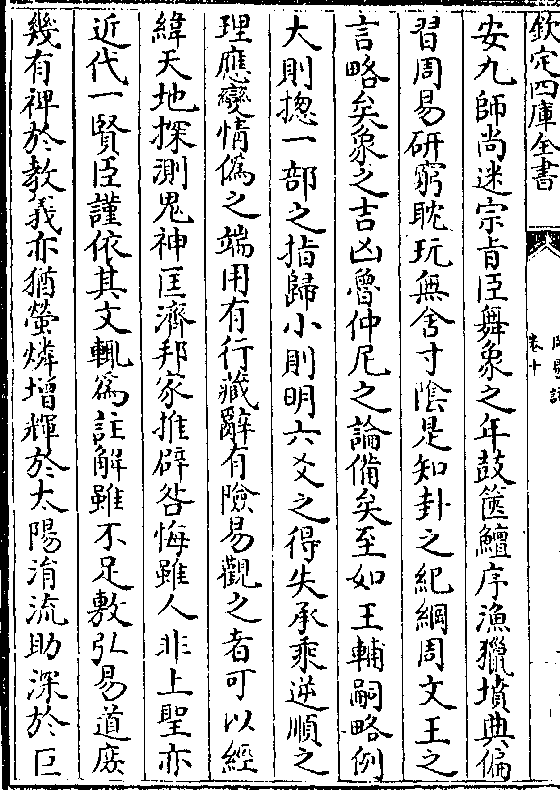 欽定四庫全書
卷十
安九師尚迷宗旨臣舞象之年鼓篋鱣序漁獵墳典偏
習周易研窮耽玩無舍寸陰是知卦之紀綱周文王之
言略矣象之吉凶魯仲尼之論備矣至如王輔嗣略例
大則揔一部之指歸小則明六爻之得失承乘逆順之
理應變情偽之端用有行藏辭有險易觀之者可以經
緯天地探測鬼神匡濟邦家推辟咎悔雖人非上聖亦
近代一賢臣謹依其文輒為註解雖不足敷弘易道庶
幾有裨於教義亦猶螢燐增輝於太陽涓流助深於巨